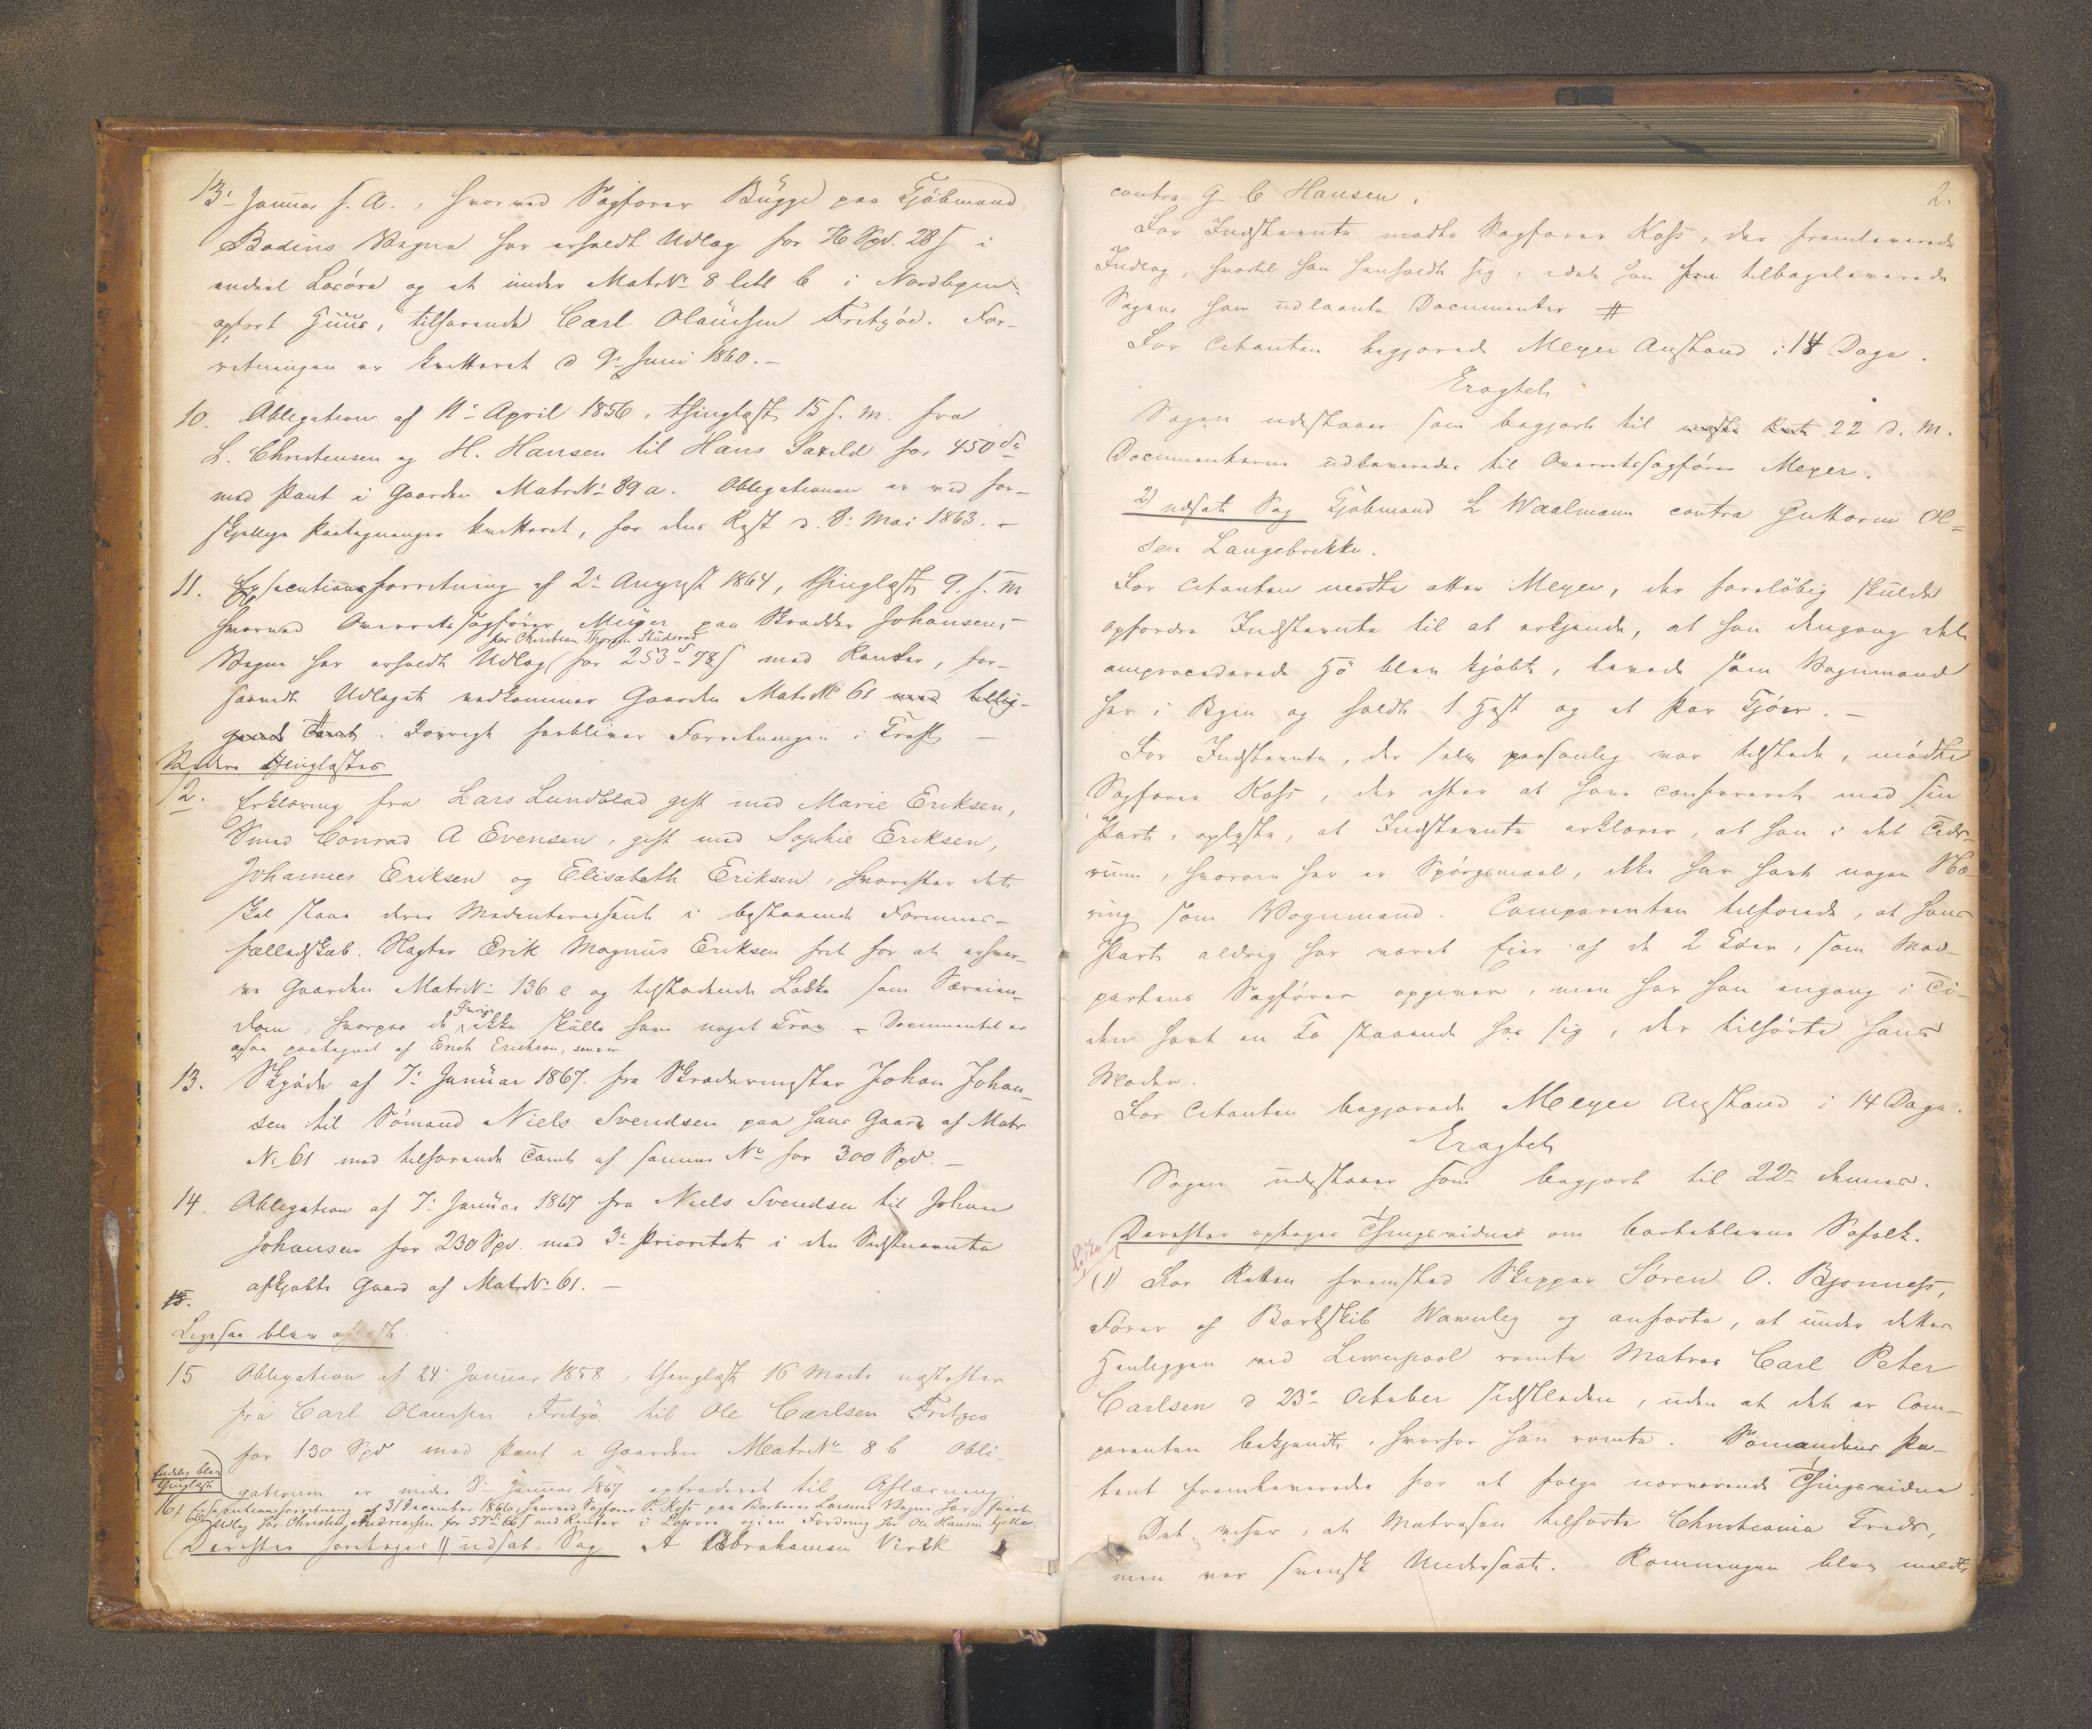 13de Januar s. A., hvorved Sagfører Bügge paa Kjøbmand
Bodins Vegne har erholdt Udlæg for 76 Spd. 28 s i
endeel Løsøre og et under MatrN° 8 litl b i Nordbyen
opført Huus, tilhørende Carl Olaüssen Fritzøe. For-
retningen er kvitteret d 9de Juni 1860. –
10. Obligation af 11te April 1856, thinglæst 15 s. M. fra
L. Christensen og H. Hansen til Hans Saxild for 450 Sp
med Pant i Gaarden MatrN° 89 a. Obligationen er med for-
skjellige Paategneninger kvitteret, for dens Rest d. 8de Mai 1863. –
11. Executionsforretning af 2den August 1864, thinglæst 9. s. M
hvorved Overretssagfører Meyer paa Skrædder Johansens
hos Christian Thorsen
Vegne har erholdt Udlæg for 253 Sp 78 s med Renter, for-
saavidt Udlæget vedkommer Gaarden MatrN° 61 med tillig-
gende Tomt. Iøvrigt forbliver Forretningen i Kraft –
Videre thinglæstes
12. Erklæring fra Lars Lundblad gift med Marie Eriksen,
Smed Conrad A Evensen, gift med Sophie Eriksen,
Johannes Eriksen og Elisabeth Eriksen, hvorefter det
skal staae deres Medinteressent i bestaaende Formues-
fælledskab. Slagter Erik Magnüs Eriksen frit for at erhver-
ve Gaarden MatrN° 136 e og tilstødende Løkke som Særeien-
øvrige
dom, hvorpaa de ikke skülle have noget Krav. – Documentet er
ogsaa paategnet af Erich Erickson, senior
13. Skjøde af 7de Januar 1867 fra Skrædermester Johan Johan-
sen til Sømand Niels Svendsen paa hans Gaard af Matr
N° 61 med tilhørende Tomt af samme N° for 300 Spd. –
14. Obligation af 7de Januar 1867 fra Niels Svendsen til Johan
Johansen for 230 Spd. med 3de Prioritet i den Sidstnævnte
afkjøbte Gaard af MatrN° 61. –
15.
Ligesaa blev aflæst.
15 Obligation af 24de Januar 1858, thinglæst 16 Marts næstefter
fra Carl Olaussen Fritzø til Ole Carlsen Fritzøe
for 130 Spd med Pant i Gaarden MatrN° 8 b Obli-
gationen er under 8de Januar 1867 extraderet til Aflæsning.
Endelig blev
thinglæst
16) Executionsforretning af 31 December 1866, hvorved Sagfører P. Koss paa Barberer Larsens Vegne har faaet
Udlæg hos Christen Andreassen for 57 Sp 66 s med Renter i Løsøre og i en Fordring hos Ole Hansen Kjelle
Derefter foretages 1) udsat Sag A Abrahamsen Virik
2.
contra G. C Hansen.
For Indstævnte mødte Sagfører Koss, der fremleverede
Indlæg, hvortil han henholdt sig, idet han tilbageleverede
Sagens ham udlaante Documenter #
For Citanten begjærede Meyer Anstand i 14 Dage.
Eragtet
Sagen udestaaer som begjært til næste Ret 22 d. M.
Documenterne udleveredes til Overretssagfører Meyer.
2) udsat Sag Kjøbmand L Waalmann contra Guttorm Ol-
sen Langebrekke.
For Citanten mødte atter Meyer, der foreløbig skulde
opfordre Indstævnte til at erkjende, at han dengang det
omprocederede Hø blev kjøbt, levede som Vognmand
her i Byen og holdt 1 Hest og et Par Kjøer. –
For Indstævnte, der selv personlig var tilstede, mødte
Sagfører Koss, der efter at have confereret med sin
Part, oplyste, at Indstævnte erklærer, at han i det Tids-
rum, hvorom her er Spørgsmaal, ikke har havt nogen Næ-
ring som Vognmand. Comparenten tilføiede, at hans
Part aldrig har været Eier af de 2 Køer, som Mod-
partens Sagfører opgiver, men har han engang i Ti-
den havt en Ko staaende hos sig, der tilhørte hans
Moder.
For Citanten begjærede Meyer Anstand i 14 Dage.
Eragtet
Sagen udestaaer som begjært til 22de dennes.
Derefter optoges Thingsvidner om borteblevne Søfolk.
(1) For Retten fremstod Skipper Søren O. Bjonness,
Fører af Barkskib Wamvleg og anførte, at under dettes
Henliggen ved Liverpool rømte Matros Carl Peter
Carlsen d 23de October sidstleden, uden at det er Com-
parenten bekjendt, hvorfor han rømte. Sømandens Pa-
tent fremleveredes for at følge nærværende Thingsvidne.
Det viser, at Matrosen tilhørte Christiania Kreds,
men var svensk Undersaat. Rømningen blev meldt